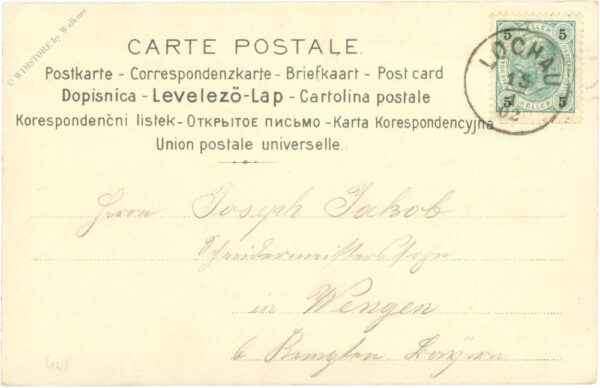 © WIMSTORE by Walkner
CARTE POSTALE.
Postkarte - Correspondenzkarte - Briefkaart - Post card
Dopisnica - Levelezö-Lap - Cartolina postale
Korespondenčni listek - Открытое письмо - Karta Korespondencyjna
Union postale universelle.
5 HELLER 5
5 HELLER 5
LOCHAU
Herrn Joseph Jakob
in Wengen
b. Kempten Bayern